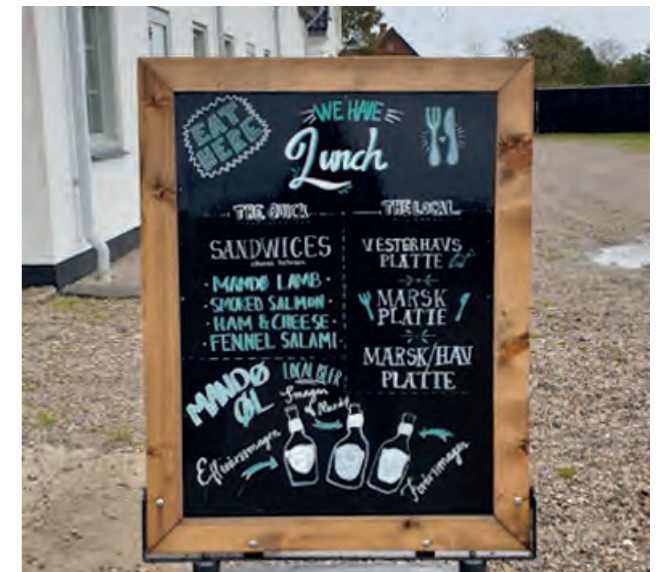 EAT
HERE
WE HAVE
Lunch
THE QUICK
SANDWICES
MANDØ LAMB
SMOKED SALMON
HAM & CHEESE
FENNEL SALAMI
THE LOCAL
VESTERHAVS
PLATTE
MARSK
PLATTE
MARSK/HAV
PLATTE
MANDØ
ØL
LOCAL BEER
Smagen
Efterårssmagen